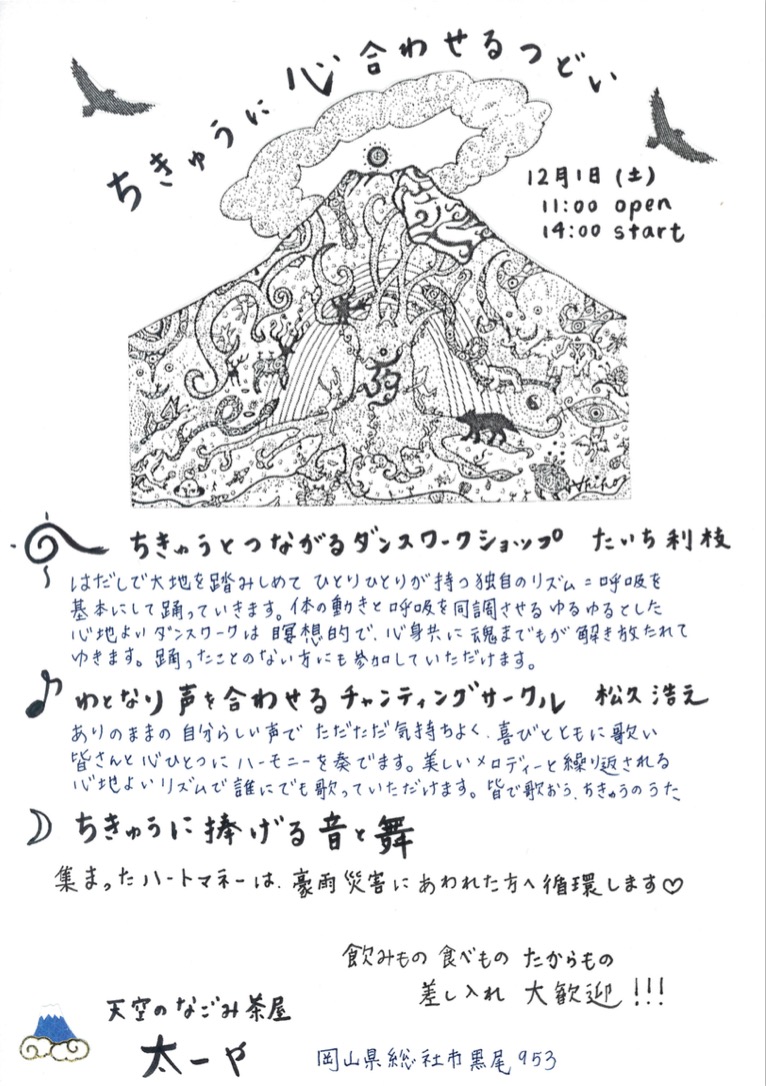 ちきゅうに心合わせるつどい
12月1日(土)
11:00 open
14:00 start
ちきゅうとつながるダンスワークショップ たいち利枝
はだしで大地を踏みしめて ひとりひとりが持つ独自のリズム=呼吸を
基本にして踊っていきます。体の動きと呼吸を同調させる ゆるゆるとした
心地よいダンスワークは 瞑想的で、心身共に魂までもが 解き放たれて
ゆきます。踊ったことのない方にも参加していただけます。
わとなり 声を合わせる チャンティングサークル 松久浩え
ありのままの 自分らしい声で ただただ気持ちよく、喜びとともに歌い
皆さんと心ひとつに ハーモニーを奏でます。美しいメロディーと繰り返される
心地よいリズムで 誰にでも歌っていただけます。皆で歌おう、ちきゅうのうた
ちきゅうに捧げる音と舞
集まったハートマネーは、豪雨災害にあわれた方へ循環します♡
飲みもの 食べもの たからもの
差し入れ 大歓迎!!!
天空のなごみ茶屋
太一や
岡山県総社市黒尾953